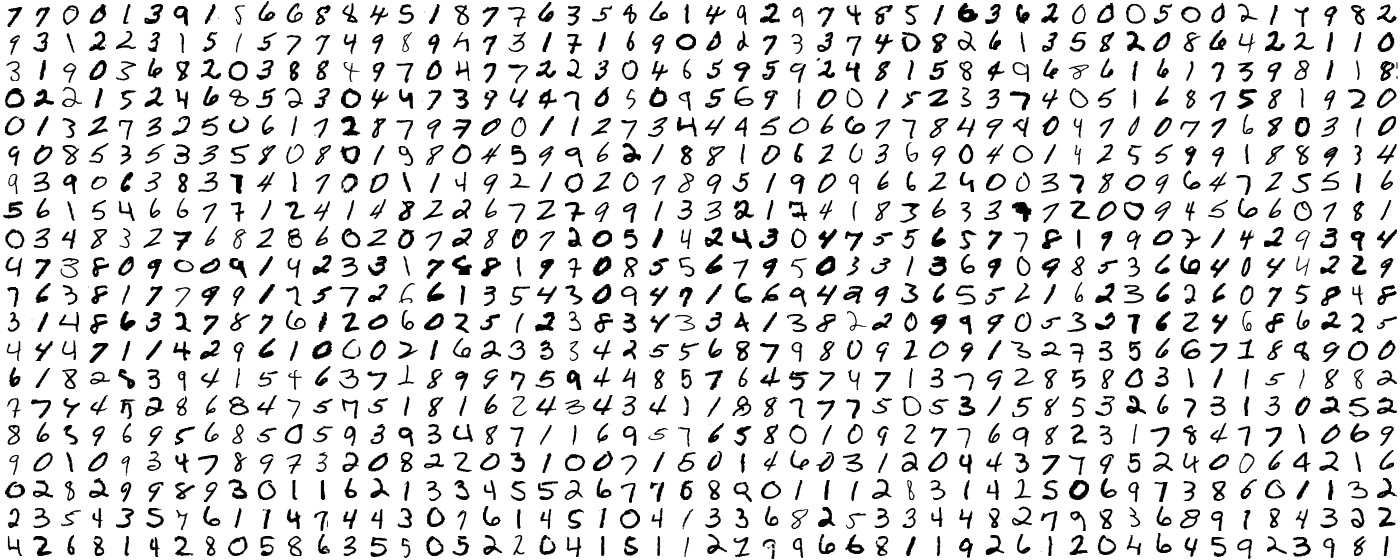 7 7 0 0 1 3 9 1 5 6 6 8 8 4 5 1 8 7 7 6 3 5 8 6 1 4 9 2 9 7 4 8 5 1 6 3 6 2 0 0 0 5 0 0 2 1 4 9 8 2
9 3 1 2 2 3 1 5 1 5 7 7 4 9 8 9 4 7 3 1 7 1 6 9 0 0 2 7 3 3 7 4 0 8 2 6 1 3 5 8 2 0 8 6 4 2 2 1 1 0
3 1 9 0 3 6 8 2 0 3 8 8 4 9 7 0 4 7 7 2 2 3 0 4 6 5 9 5 9 2 4 8 1 5 8 4 9 6 8 6 1 6 1 7 3 9 8 1 1 8
0 2 2 1 5 2 4 6 8 5 2 3 0 4 4 7 3 9 4 4 7 0 5 0 9 5 6 9 1 0 0 1 5 2 3 3 7 4 0 5 1 6 8 7 5 8 1 9 2 0
0 1 3 2 7 3 2 5 0 6 1 7 2 8 7 9 7 0 0 1 1 2 7 3 4 4 4 5 0 6 6 7 7 8 4 9 9 4 0 4 7 0 0 7 7 6 8 0 3 1 0
9 0 8 5 3 5 3 3 5 8 0 8 0 1 9 8 0 4 5 9 9 6 2 1 8 8 1 0 6 2 0 3 6 9 0 4 0 1 4 2 5 5 9 9 1 8 8 9 3 4
9 3 9 0 6 3 8 3 7 4 1 7 0 0 1 1 4 9 2 1 0 2 0 7 8 9 5 1 9 0 9 6 6 2 4 0 0 3 7 8 0 9 6 4 7 2 5 5 1 6
5 6 1 5 4 6 6 7 7 1 2 4 1 4 8 2 2 6 7 2 7 9 9 1 3 3 2 1 7 4 1 8 3 6 3 3 9 7 2 0 0 9 4 5 6 6 0 7 8 1
0 3 4 8 3 2 7 6 8 2 8 6 0 2 0 7 2 8 0 7 2 0 5 1 4 2 4 3 0 4 7 5 5 6 5 7 7 8 1 9 9 0 7 1 4 2 9 3 9 4
4 7 3 8 0 9 0 0 9 1 4 2 3 3 1 7 5 8 1 9 7 0 8 5 5 6 7 9 5 0 3 3 1 3 6 9 0 9 8 5 3 6 6 4 0 4 4 2 2 9
7 6 3 8 1 7 7 9 9 1 2 5 7 2 6 6 1 3 5 4 3 0 9 4 7 1 6 6 9 4 2 9 3 6 5 5 2 1 6 2 3 6 2 6 0 7 5 8 4 8
3 1 4 8 6 3 2 7 8 7 6 1 2 0 6 0 2 5 1 2 3 8 3 4 3 3 4 1 3 8 2 2 0 9 9 9 0 5 3 2 7 6 2 4 6 8 6 2 2 5
4 4 4 7 1 1 4 2 9 6 1 0 0 0 2 1 6 2 3 3 3 4 2 5 5 6 8 7 9 8 0 9 2 0 9 1 3 2 7 3 5 6 6 7 1 8 8 9 0 0
6 1 8 2 8 3 9 4 1 5 4 6 3 7 1 8 9 9 7 5 9 4 4 8 5 7 6 4 5 7 4 7 1 3 7 9 2 8 5 8 0 3 1 1 1 5 1 8 8 2
7 7 4 4 5 2 8 6 8 4 7 5 7 5 1 8 1 6 2 4 3 4 3 4 1 1 8 8 7 7 7 5 0 5 3 1 5 8 5 3 2 6 7 3 1 3 0 2 5 2
8 6 3 9 6 9 5 6 8 5 0 5 9 3 9 3 4 8 7 1 1 6 9 5 7 6 5 8 0 1 0 9 2 7 7 6 9 8 2 3 1 7 8 4 7 7 1 0 6 9
9 0 1 0 9 3 4 7 8 9 7 3 2 0 8 2 2 0 3 1 0 0 7 1 5 0 1 4 6 0 3 1 2 0 4 4 3 7 7 9 5 2 4 0 0 6 4 2 1 6
0 2 8 2 9 9 8 9 3 0 1 1 6 2 1 3 3 4 5 5 2 6 7 7 6 8 9 0 1 1 1 2 8 3 1 4 2 5 0 6 9 7 3 8 6 0 1 1 3 2
2 3 5 4 3 5 7 6 1 7 4 7 4 4 3 0 7 6 1 4 5 1 0 4 1 3 3 6 8 2 5 3 3 4 4 8 2 7 9 8 3 6 8 9 1 8 4 3 2 2
4 2 6 8 1 4 2 8 0 5 8 6 3 5 5 0 5 2 2 0 4 1 5 1 1 2 2 9 9 6 6 8 1 1 9 2 6 1 2 0 4 6 4 5 9 2 3 9 8 1